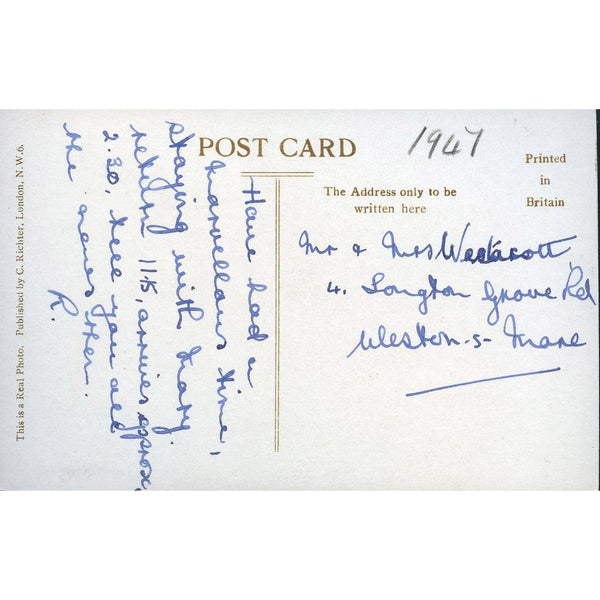 POST CARD
1947
Printed
in
Britain
The Address only to be
written here
Mr & Mrs Westacott,
4. Longton Grove Rd
Weston-s-Mare
Have had a
marvellous time,
staying with Mary.
return 11.15, arrives approx
2.30, tell you all
the news then.
R.
This is a Real Photo. Published by C. Richter, London, N.W.6.